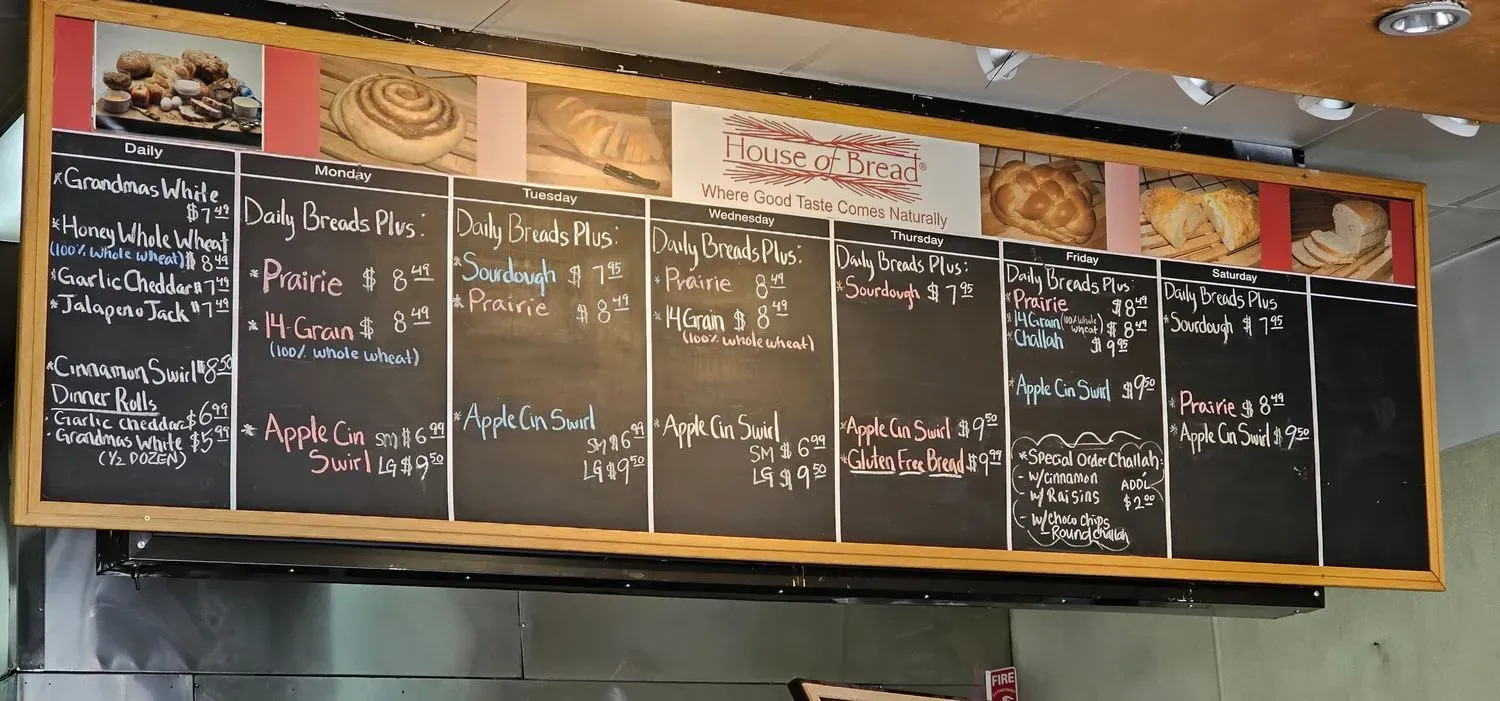 House of Bread®
Where Good Taste Comes Naturally
Daily
*Grandmas White
$7.49
*Honey Whole Wheat
(100% whole wheat) $8.49
*Garlic Cheddar $7.49
*Jalapeno Jack $7.49
*Cinnamon Swirl $8.50
Dinner Rolls
· Garlic cheddar $6.99
· Grandmas White $5.99
(1/2 DOZEN)
Monday
Daily Breads Plus:
* Prairie $ 8.49
* 14-Grain $ 8.49
(100% whole wheat)
* Apple Cin SM $6.99
Swirl LG $9.50
Tuesday
Daily Breads Plus:
*Sourdough $ 7.95
*Prairie $8.49
*Apple Cin Swirl
SM $6.99
LG $9.50
Wednesday
Daily Breads Plus:
* Prairie 8.49
* 14 Grain $ 8.49
(100% whole wheat)
*Apple Cin Swirl
SM $6.99
LG $9.50
Thursday
Daily Breads Plus:
*Sourdough $ 7.95
*Apple Cin Swirl $9.50
*Gluten Free Bread $9.99
Friday
Daily Breads Plus:
*Prairie $8.49
*14 Grain (100% whole wheat) $8.49
*Challah $9.95
*Apple Cin Swirl $9.50
*Special Order Challah:
- w/cinnamon ADDL
- w/ Raisins $2.00
- w/choco chips
- Round challah
Saturday
Daily Breads Plus
*Sourdough $ 7.95
* Prairie $8.49
*Apple Cin Swirl $9.50
FIRE